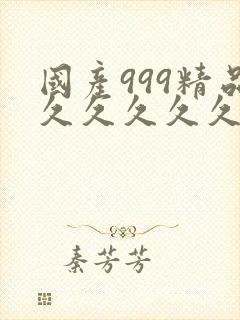 國產999精品
久久久久久
秦芳芳